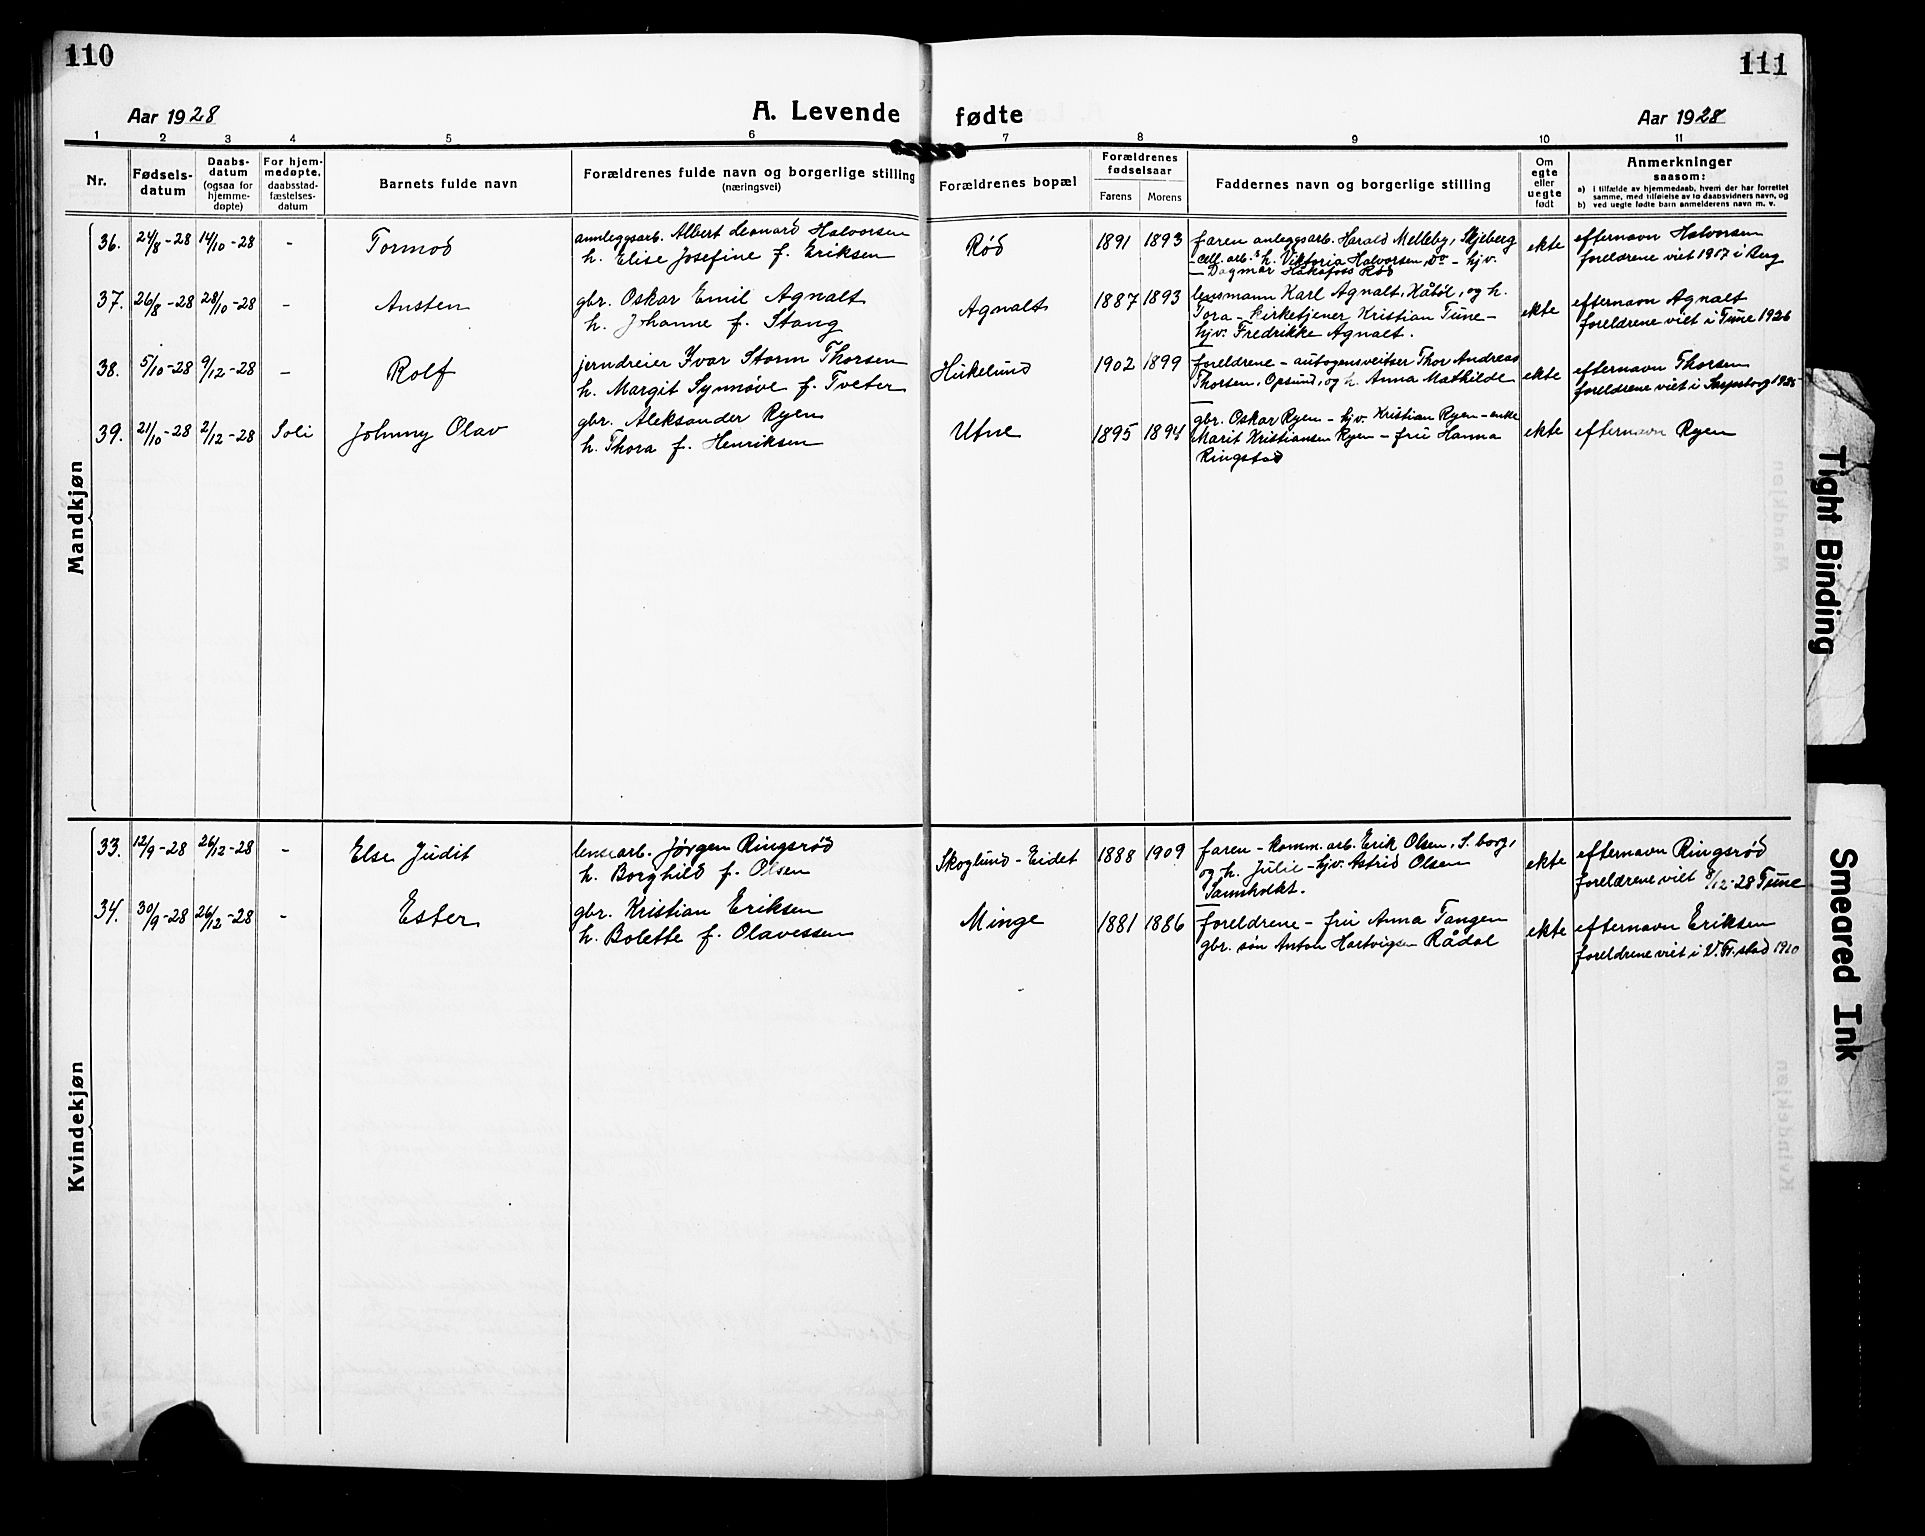 110
111
Aar 1928
A. Levende fødte
Aar 1928
1 2 3 4 5 6 7 8 9 10 11
Nr.
Fødsels-
datum
Daabs-
datum
(ogsaa for
hjemme-
døpte)
For hjem-
medøpte,
daabsstad-
fæstelses-
datum
Barnets fulde navn
Forældrenes fulde navn og borgerlige stilling
(næringsvei)
Forældrenes bopæl
Forældrenes
fødselsaar
Farens Morens
Faddernes navn og borgerlige stilling
Om
egte
eller
uegte
født
Anmerkninger
saasom:
a) i tilfælde av hjemmedaab, hvem der har forrettet
samme, med tilføielse av to daabsvidners navn, og
b) ved uegte fødte barn anmelderens navn m. v.
Mandkjøn
36. 24/8-28 14/10-28 - Tormod
annleggsarb. Albert Leonard Halvorsen
h. Elise Josefine f. Eriksen
Rød 1891 1893
faren anleggsarb. Harald Melleby, Skjeberg
- cell. arb. h. Viktoria Halvorsen, do - hjv.
- Dagmar Hakafoss Rød
ekte
efternavn Halvorsen
foreldrene viet 1917 i Berg
37. 26/8-28 28/10-28 - Austen
gbr. Oskar Emil Agnalt
h. Johanne f. Stang
Agnalt 1887 1893
lensmann Karl Agnalt, Håbøl, og h.
Tora - kirketjener Kristian Tune -
hjv. Fredrikke Agnalt.
ekte
efternavn Agnalt
foreldrene viet i Tune 1926
38. 5/10-28 9/12-28 - Rolf
jerndreier Ivar Storm Thorsen
h. Margit Synnøve f. Tveter
Hukelund 1902 1899
foreldrene - autogensveitser Thor Andreas
Thorsen, Opsund, og h. Anna Mathilde
ekte
efternavn Thorsen
foreldrene viet i Sarpsborg
39. 21/10-28 2/12-28 Soli Johnny Olav
gbr. Aleksander Ryen
h. Thora f. Henriksen
Utne 1895 1894
gbr. Oskar Ryen - hjv. Kristian Ryen - enke
Marit Kristiansen Ryen - fru Hanna
Ringstad
ekte
efternavn Ryen
Kvindekjøn
33. 12/9-28 26/12-28 - Else Judit
lensearb. Jørgen Ringsrød
h. Borghild f. Olsen
Skoglund - Eidet 1888 1909
faren - komm. arb. Erik Olsen, S.borg,
og h. Julie - hjv. Astrid Olsen
ekte
efternavn Ringsrød
foreldrene viet 8/12-28 Tune
34. 30/9-28 26/12-28 - Ester
gbr. Kristian Eriksen
h. Bolette f. Olavessen
Minge 1881 1886
foreldrene - fru Anna Tangen
gbr. søn Anton Hartvigsen Rådal
ekte
efternavn Eriksen
foreldrene viet i V. Fr.stad 1910
Tight Binding
Smeared Ink